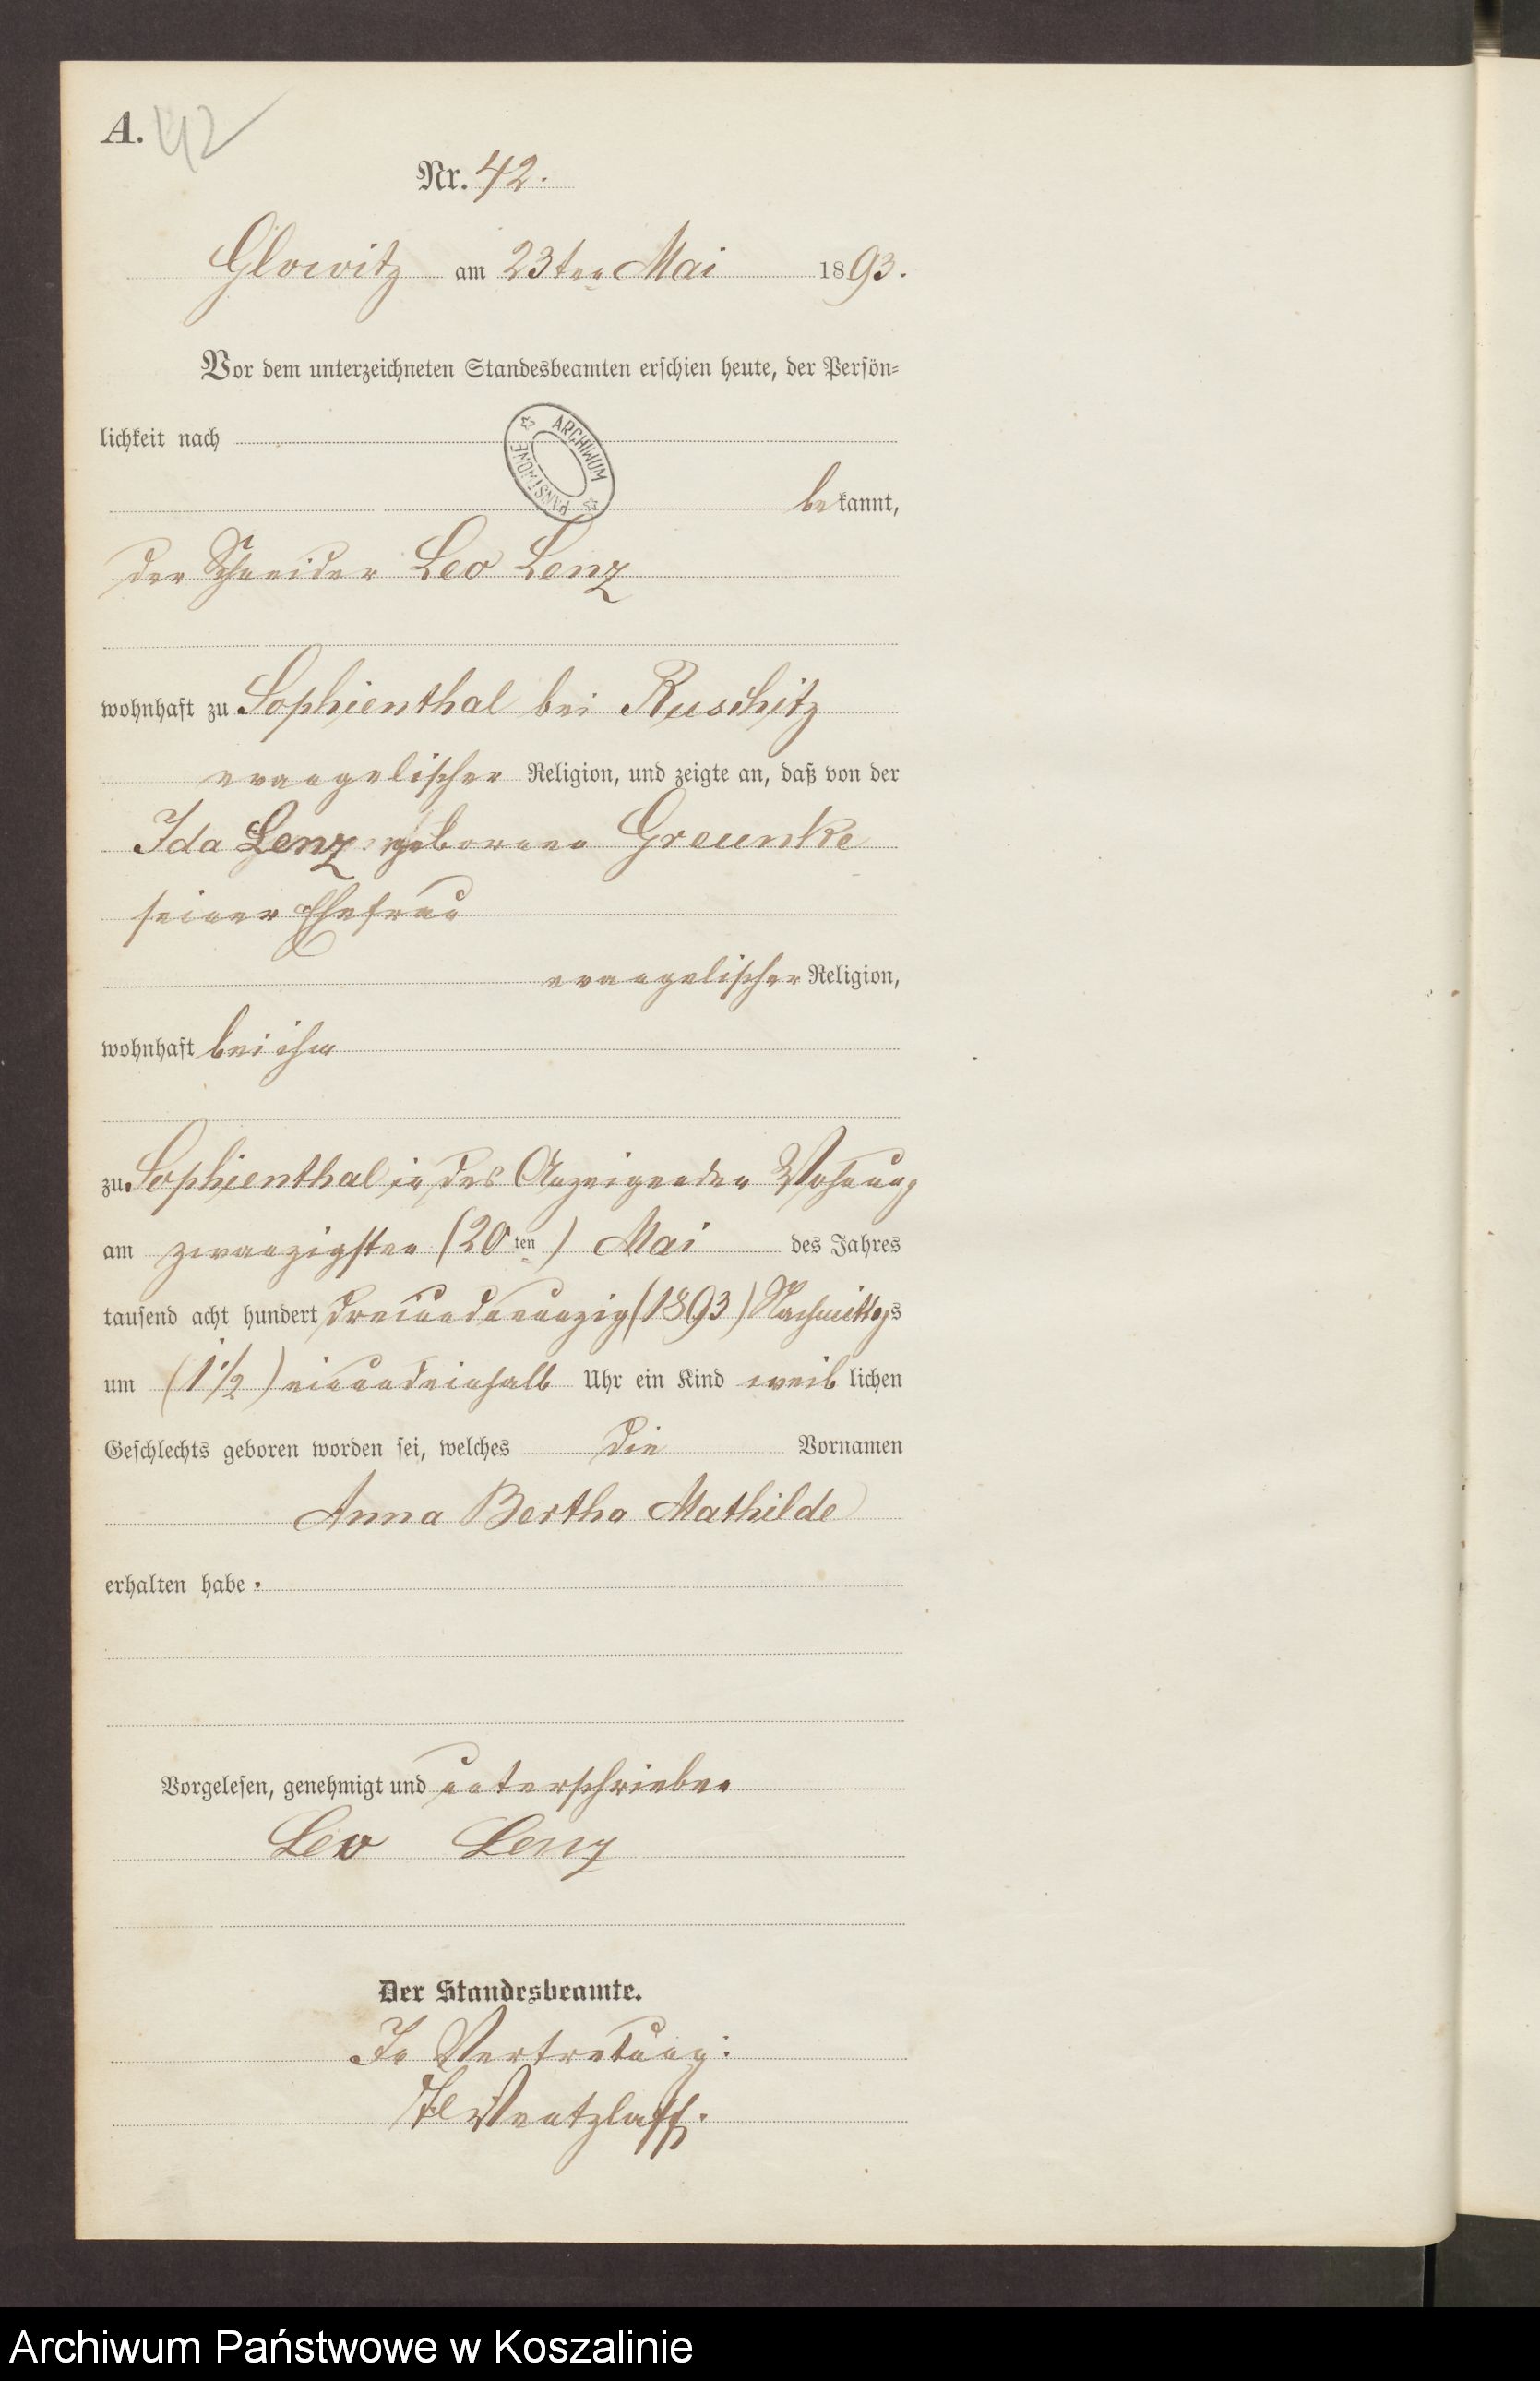 A. 42
Nr. 42.
Glowitz am 23ten Mai 1893.
Vor dem unterzeichneten Standesbeamten erschien heute, der Persön-
lichkeit nach
ARCHIWUM PAŃSTWOWE
bekannt,
der Schneider Leo Lenz
wohnhaft zu Sophienthal bei Ruschitz
evangelischer Religion, und zeigte an, daß von der
Ida Lenz geborene Greunke
seiner Ehefrau
evangelischer Religion,
wohnhaft bei ihm
zu Sophienthal in des Anzeigenden Wohnung
am zwanzigsten (20ten) Mai des Jahres
tausend acht hundert dreiundneunzig (1893) Nachmittags
um (1 1/2) einundeinhalb Uhr ein Kind weiblichen
Geschlechts geboren worden sei, welches die Vornamen
Anna Bertha Mathilde
erhalten habe.
Vorgelesen, genehmigt und unterschrieben
Leo Lenz
Der Standesbeamte.
In Vertretung:
Wentzlaff.
Archiwum Państwowe w Koszalinie